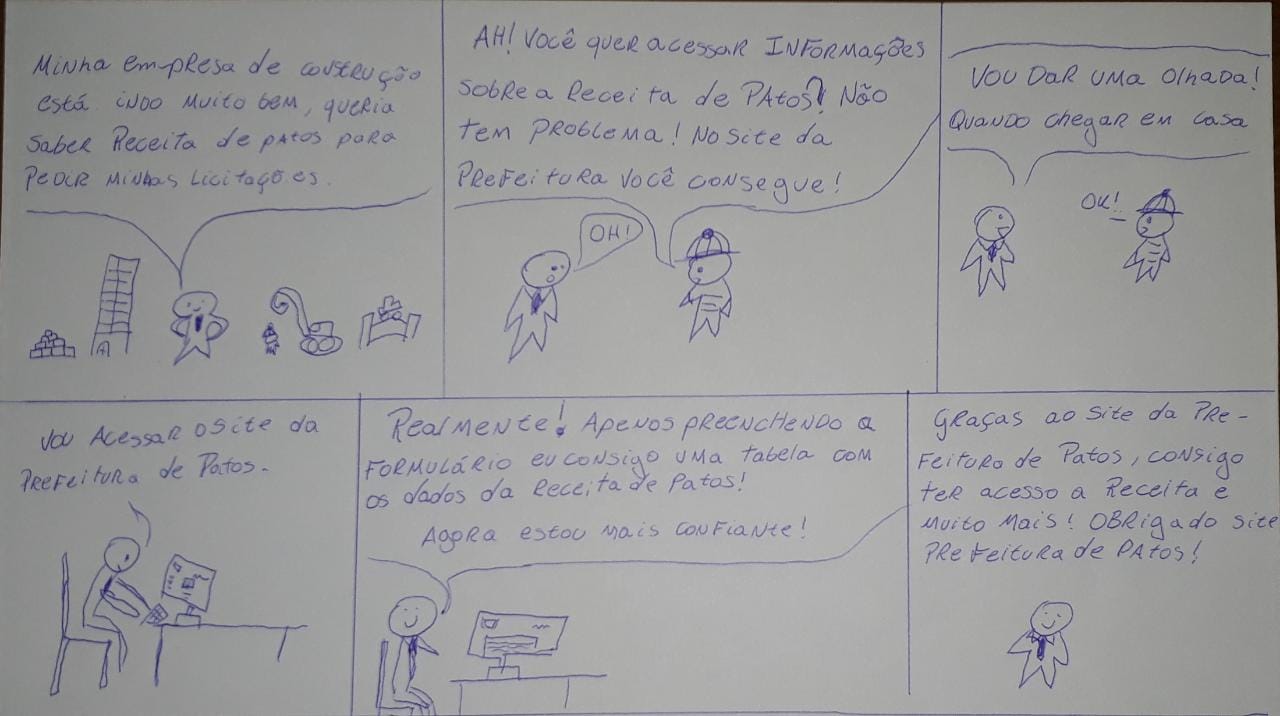 Minha empresa de construção
está indo muito bem, queria
saber Receita de patos para
Pedir minhas Licitações.
AH! Você quer acessar INFORMAÇÕES
sobre a Receita de PAtos? Não
tem PROBLEMA! No site da
PREFEITURA VOCÊ CONSEGUE!
OH!
VOU DAR UMA Olhada!
Quando chegar em casa
OK!..
Vou Acessar o site da
PREFEITURA de Patos.
Realmente! Apenas preenchendo a
FORMULÁRIO eu consigo uma tabela com
os dados da Receita de Patos!
Agora estou mais confiante!
GRAÇAS ao site da PRE-
FEITURA de Patos, consigo
ter acesso a Receita e
muito mais! OBRIGADO site
PREFEITURA de PAtos!